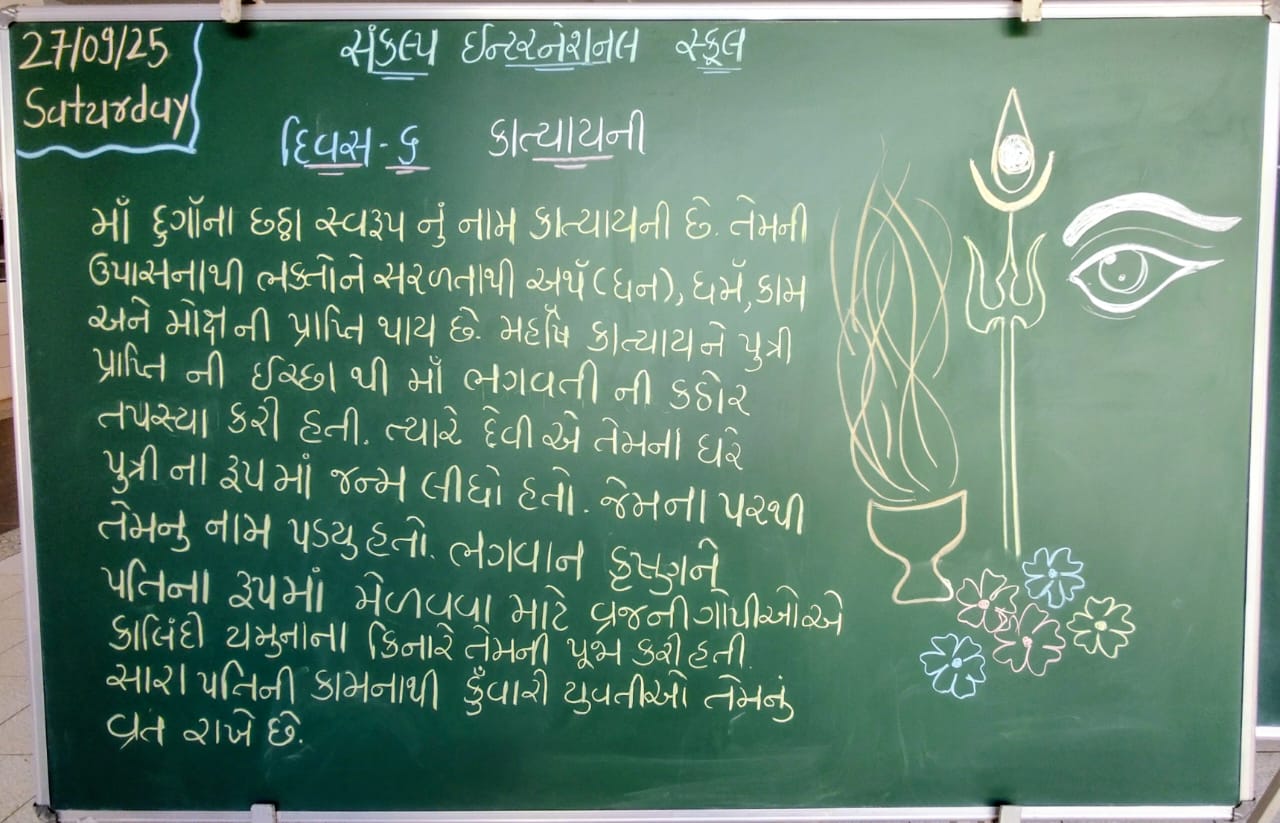 27/09/25
Saturday
સંકલ્પ ઈન્ટરનેશનલ સ્કૂલ
દિવસ - ૬ કાત્યાયની
માઁ દુર્ગાના છઠ્ઠા સ્વરૂપ નું નામ કાત્યાયની છે. તેમની
ઉપાસનાથી ભક્તોને સરળતાથી અર્થ (ધન), ધર્મ, કામ
અને મોક્ષ ની પ્રાપ્તિ થાય છે. મહર્ષિ કાત્યાય ને પુત્રી
પ્રાપ્તિ ની ઈચ્છા થી માઁ ભગવતી ની કઠોર
તપસ્યા કરી હતી. ત્યારે દેવી એ તેમના ઘરે
પુત્રી ના રૂપ માં જન્મ લીધો હતો. જેમના પરથી
તેમનુ નામ પડયુ હતો. ભગવાન કૃષ્ણને
પતિના રૂપમાં મેળવવા માટે વ્રજની ગોપીઓએ
કાલિંદી યમુનાના કિનારે તેમની પૂજા કરી હતી.
સારા પતિની કામનાથી કુઁવારી યુવતીઓ તેમનું
વ્રત રાખે છે.